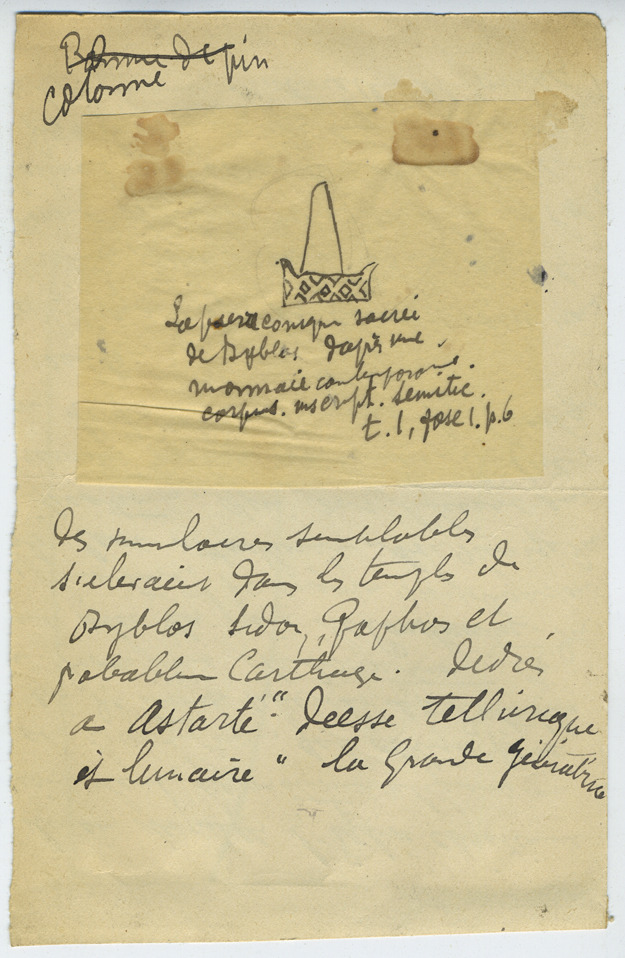 Pomme de pin
Colonne
La pierre conique sacrée
de Byblos d'après une
monnaie contemporaine.
corpus. inscript. semitic.
t. 1, fasc 1. p. 6
Des simulacres semblables
s'elevaient dans les temples de
Byblos Sidon, Paphos et
probablem Carthage. Dédiés
a Astarté "Déesse tellurique
et lunaire" la Grande Génératrice